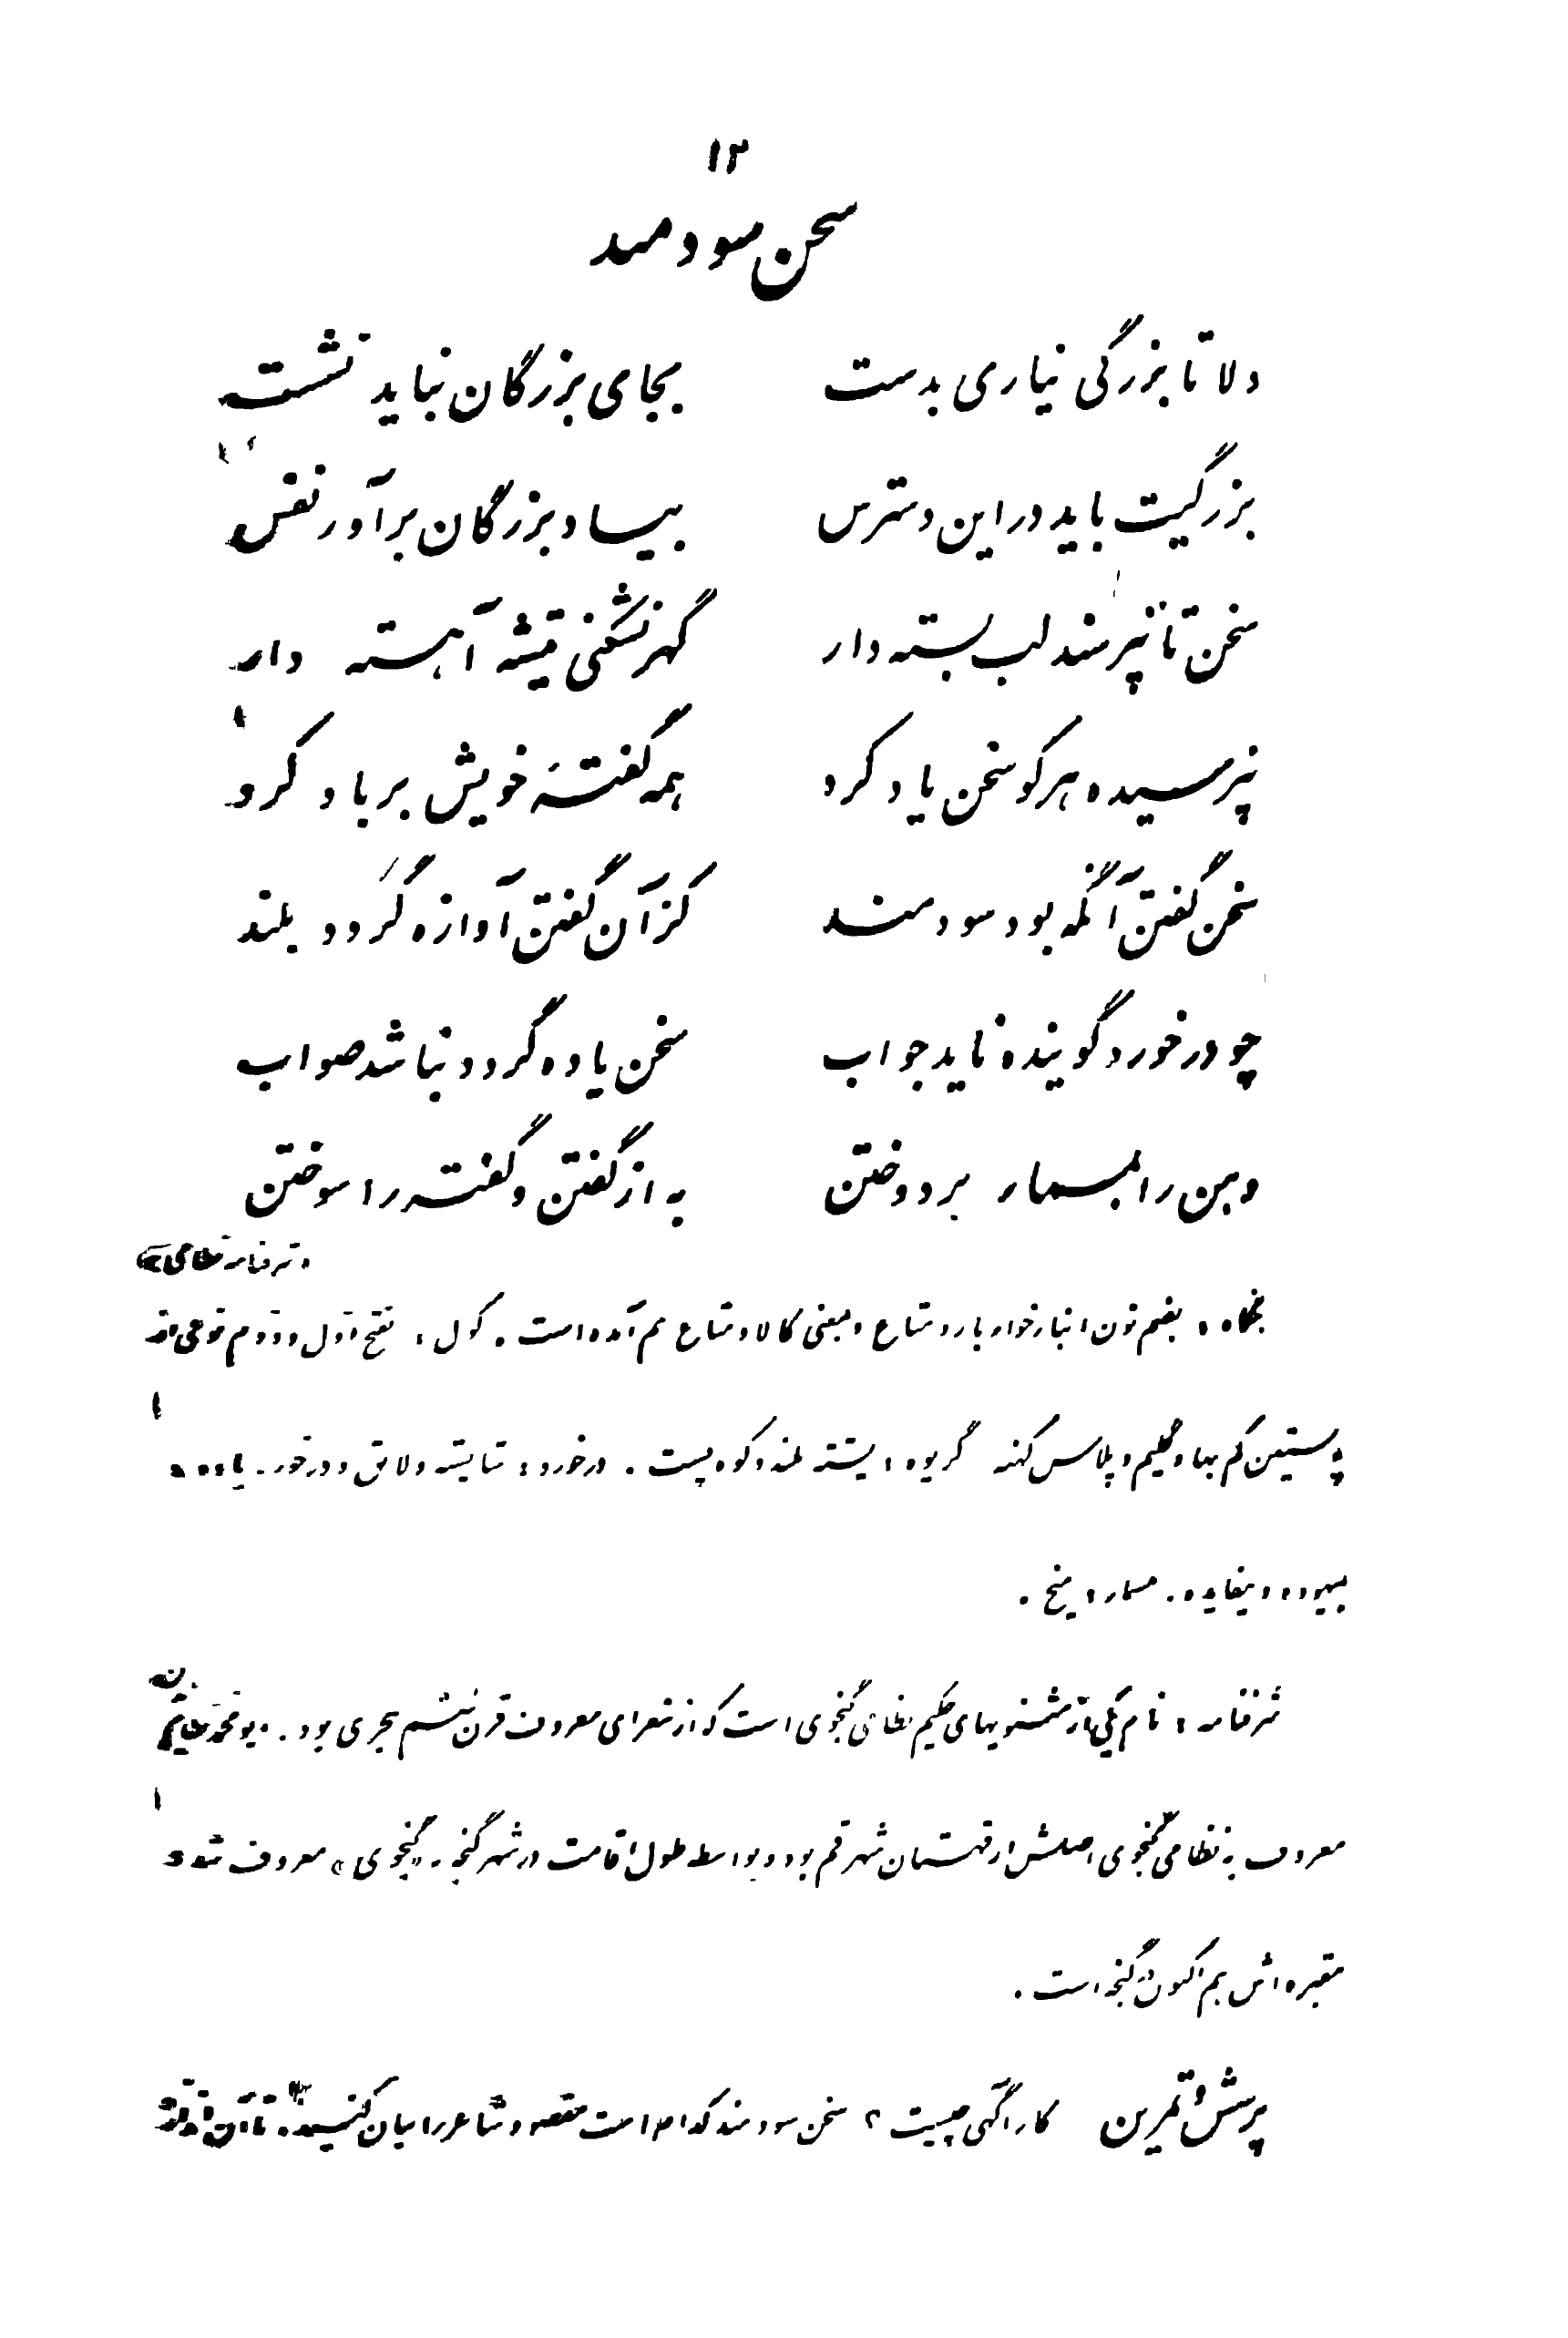 ۱۲
سخن سودمند
دلا تا بزرگی نیاری بدست بجای بزرگان نباید نشست
بزرگیت باید در این دسترس بیاد بزرگان برآور نفس
سخن تا نپرسند لب بسته دار گهر نشکنی تیشه آهسته دار
نپرسیده هر کو سخن یاد کرد همه گفتهٔ خویش بر باد کرد
سخن گفتن آنگه بود سودمند کز آن گفتن آوازه گردد بلند
چو در خورد گوینده ناید جواب سخن یاوه گردد نباشد صواب
دهن را بمسمار بر دوختن به از گفتن و گفته را سوختن
«شرفنامه نظامی»
بنگاه، بضم نون انبار خوار بار و متاع و بمعنی کالا و متاع هم آمده است. کول، بفتح اول و دوم نوعی از
پوستین کم بها و گلیم و پلاس کهنه گریوه، پشته بلند و کوه پست. در خورد، شایسته و لایق و درخور. یاوه،
بیهوده و بیفایده. مسمار، میخ.
شرفنامه، نام یکی از مثنویهای حکیم نظامی گنجوی است که از شعرای معروف قرن ششم هجری بود. ابو محمد
معروف به نظامی گنجوی اصلش از قهستان شهر قم بود و بواسطه طول اقامت در شهر گنجه به «گنجوی» معروف شد و
مقبره اش هم اکنون در گنجه است.
پرسش و تمرین کار آگهی چیست؟ سخن سودمند کدام است مقصود شاعر را بیان کنید.